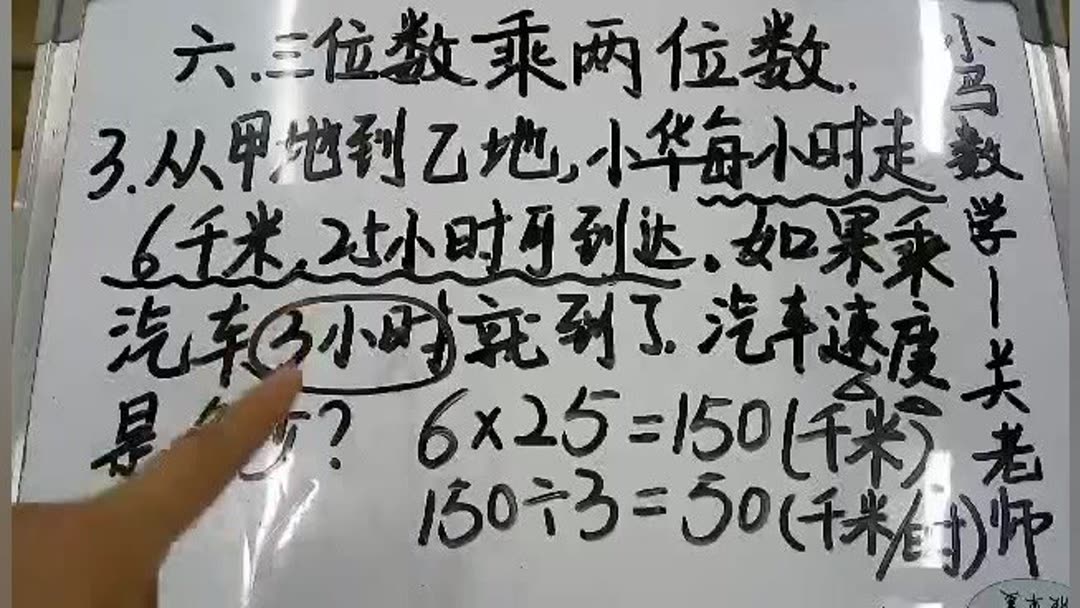 六.三位数乘两位数.
3.从甲地到乙地,小华每小时走
6千米,25小时可到达.如果乘
汽车3小时就到了.汽车速度
是 ?
6×25=150(千米).
150÷3=50(千米/时)
小马数学—关老师